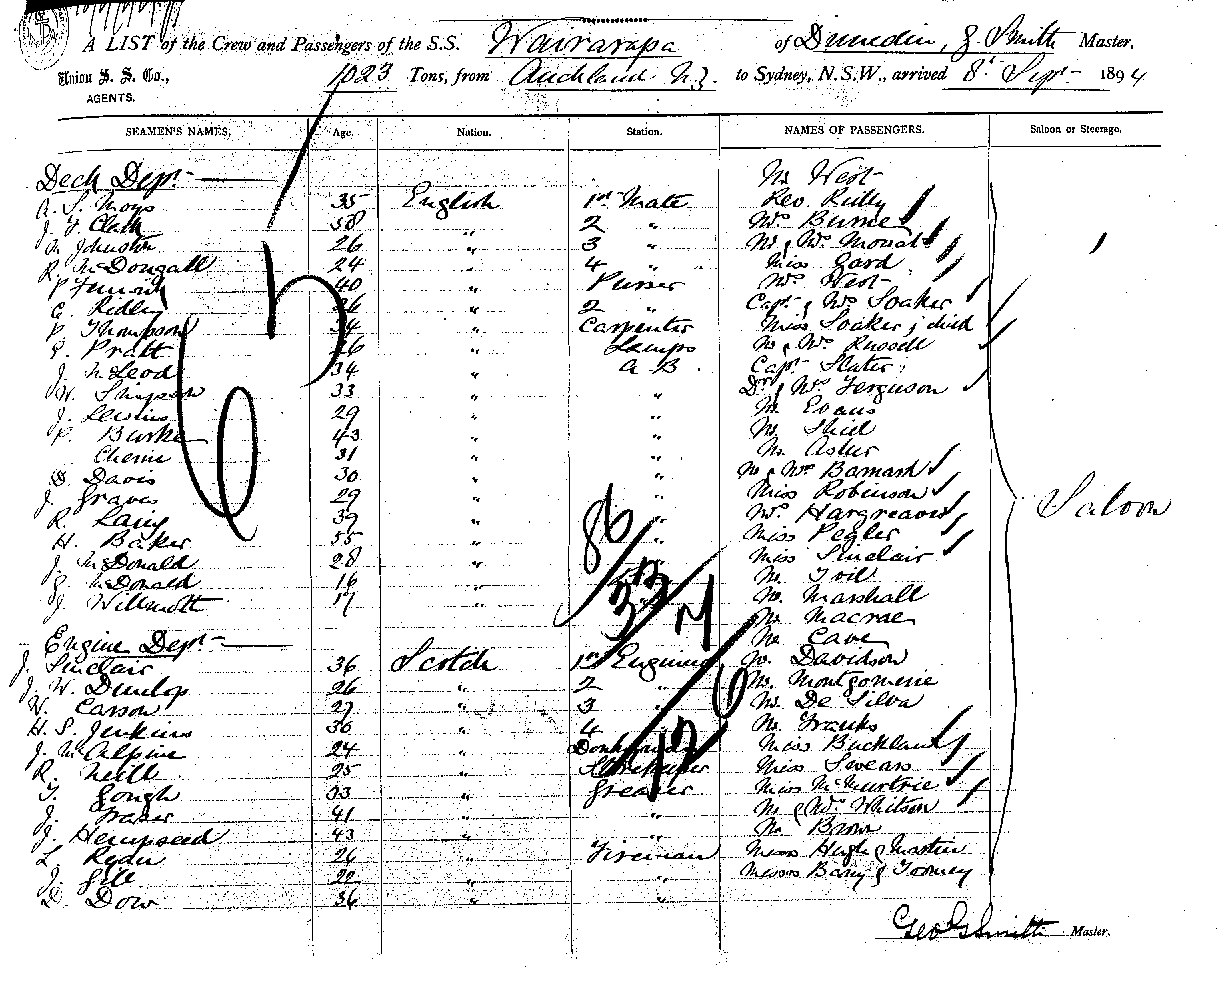 A LIST of the Crew and Passengers of the S.S. Wairarapa of Dunedin, J Smith Master,
Union S. S. Co., 1023 Tons, from Auckland N.Z. to Sydney, N.S.W., arrived 8th Sept 1894
AGENTS.
SEAMEN'S NAMES. Age. Nation. Station. NAMES OF PASSENGERS. Saloon or Steerage.
Deck Dept. Mr West
A. S. Moys 35 English 1st Mate Rev. Rilly
J. F. Clark 58 " 2 " Mrs Burne
Johnston 26 " 3 " Mr & Mrs
R. McDougall 24 " 4 " Miss Gard
P 40 " Purser Mrs West
C. Ridley 26 " 2 " Capt & Mrs Soaker
P. Thompson " Carpenter Miss Soaker & child
Pratt " Lamps Mr & Mrs Russell
J. McLeod 34 " A B Capt Slater
W. Simpson 33 " " Dr & Mrs Ferguson
J. Lewins 29 " " Mr Evans
P. Burke 43 " " Mr Shiel
31 " " Mr Asher
Davis 30 " " Mr & Mrs Barnard
J. Graves 29 " " Miss Robinson
R. Laing 39 " " Mrs Hargreaves Saloon
H. Baker 55 " Miss Pegler
J. McDonald 28 " Miss Sinclair
McDonald 16 " Mr
J. Willmott 17 " Mr Marshall
Mr Macrae
Engine Dept. Mr Cave
J. Sinclair 36 Scotch 1st Engineer Mr Davidson
J. W. Dunlop 26 " 2 " Mr Montgomerie
W. Carson 27 " 3 " Mr De Silva
H. S. Jenkins 30 " 4 " Mr Franks
J. McAlpine 24 " Donkeyman Miss Buckland
R. Neill 25 " Storekeeper Miss Swears
T. Gough 33 " Greaser Miss McMurtrie
J. Fraser 41 " " Mr & Mrs Whitson
J. Hempseed 43 " " Mr Brown
L. Ryder 26 " Fireman Messrs Hugh & Martin
J. Gill 22 " " Messrs Barry & Toomey
D. Dow 36 " "
Geo G Smith Master.